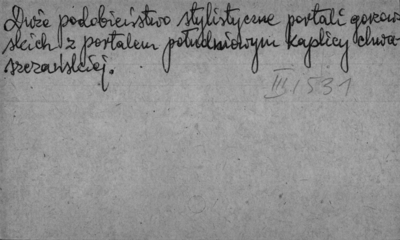 Duże podobieństwo stylistyczne portali gorzow-
skich z portalem południowym kaplicy chwar-
szczańskiej.
III 1531